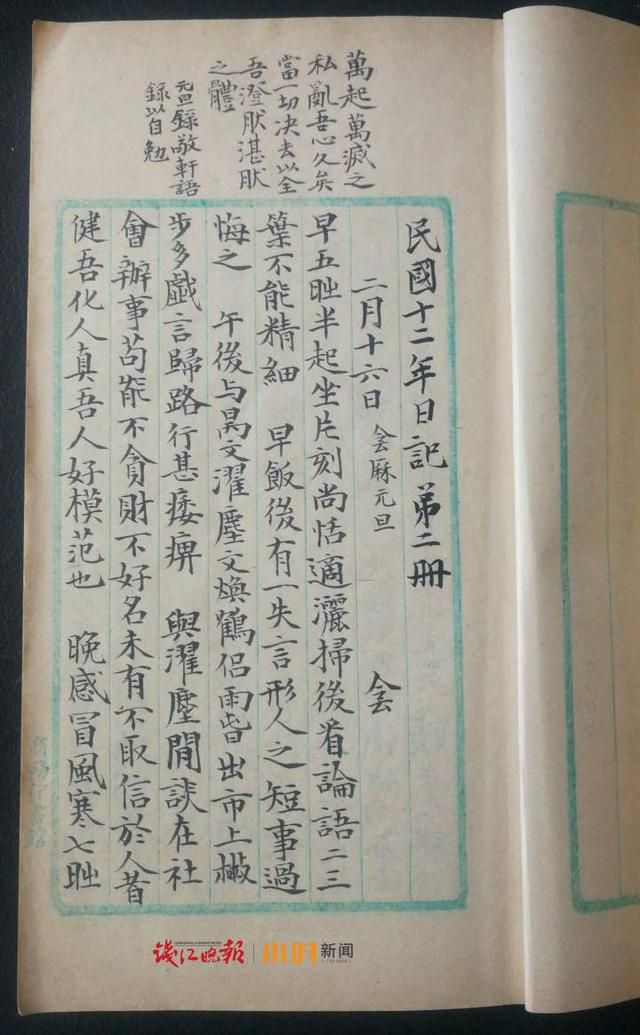 萬起萬滅之
私亂吾心久矣
當一切决去以全
吾澄肰湛肰
之體
元旦錄敬軒語
錄以自勉
民國十二年日記第二册
二月十六日 陰厤元旦 陰
早五時半起坐片刻尚恬適灑掃後看論語二三
葉不能精細 早飯後有一失言形人之短事過
悔之 午後与昺文濯塵文煥鶴侣雨皆出市上
步多戱言歸路行甚痿痹 與濯塵閒談在社
會辦事苟能不貪財不好名未有不取信於人者
健吾化人真吾人好模范也 晚感冒風寒七時
錢江晚報
小时新闻